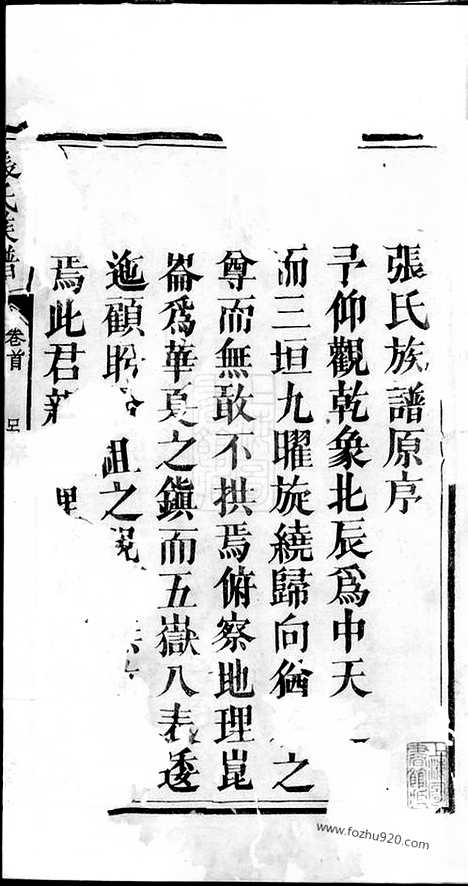 張氏族譜原序
予仰觀乾象北辰為中天
而三垣九曜旋繞歸向猶之
尊而無敢不拱焉俯察地理崑
崙為華夏之鎮而五嶽八表逶
迤顧盼祖之
焉此君
張氏族譜
卷首
www.fozhu920.com